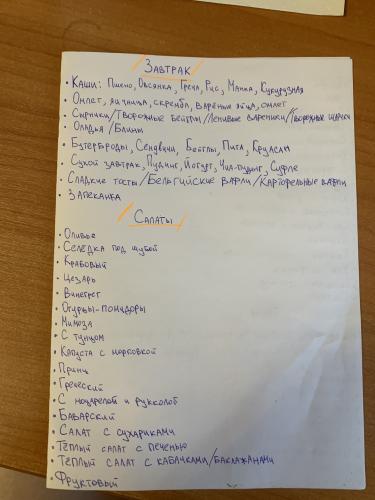 Завтрак
• Каши: Пшено, Овсянка, Греча, Рис, Манка, Кукурузная
• Омлет, яичница, скрембл, варёные яйца, омлет
• Сырники/Творожные бейглы/Ленивые вареники/Творожные шарики
• Оладья/Блины
• Бутерброды, Сендвичи, Бейглы, Пита, Круасаны
• Сухой завтрак, Пудинг, Йогурт, Чиа-пудинг, Суфле
• Сладкие тосты/Бельгийские вафли/Картофельные вафли
• Запеканка
Салаты
• Оливье
• Селёдка под шубой
• Крабовый
• Цезарь
• Винегрет
• Огурцы-помидоры
• Мимоза
• С тунцом
• Капуста с морковкой
• Принц
• Греческий
• С моцарелой и рукколой
• Баварский
• Салат с сухариками
• Тёплый салат с печенью
• Тёплый салат с кабачками/баклажанами
• Фруктовый